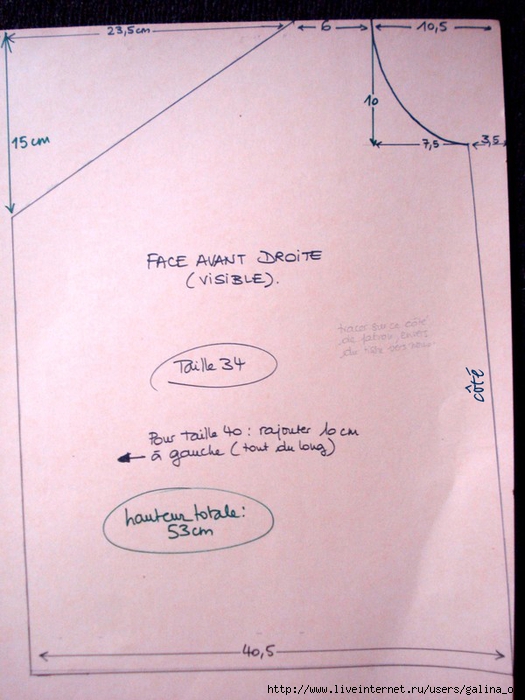 23,5cm
6
10,5
15cm
10
7,5
3,5
FACE AVANT DROITE
(VISIBLE).
tracer sur ce côté
de patron,
Taille 34
côté
Pour Taille 40 : rajouter 10 cm
à gauche (tout du long)
hauteur totale:
53cm
40,5
http://www.liveinternet.ru/users/galina_o